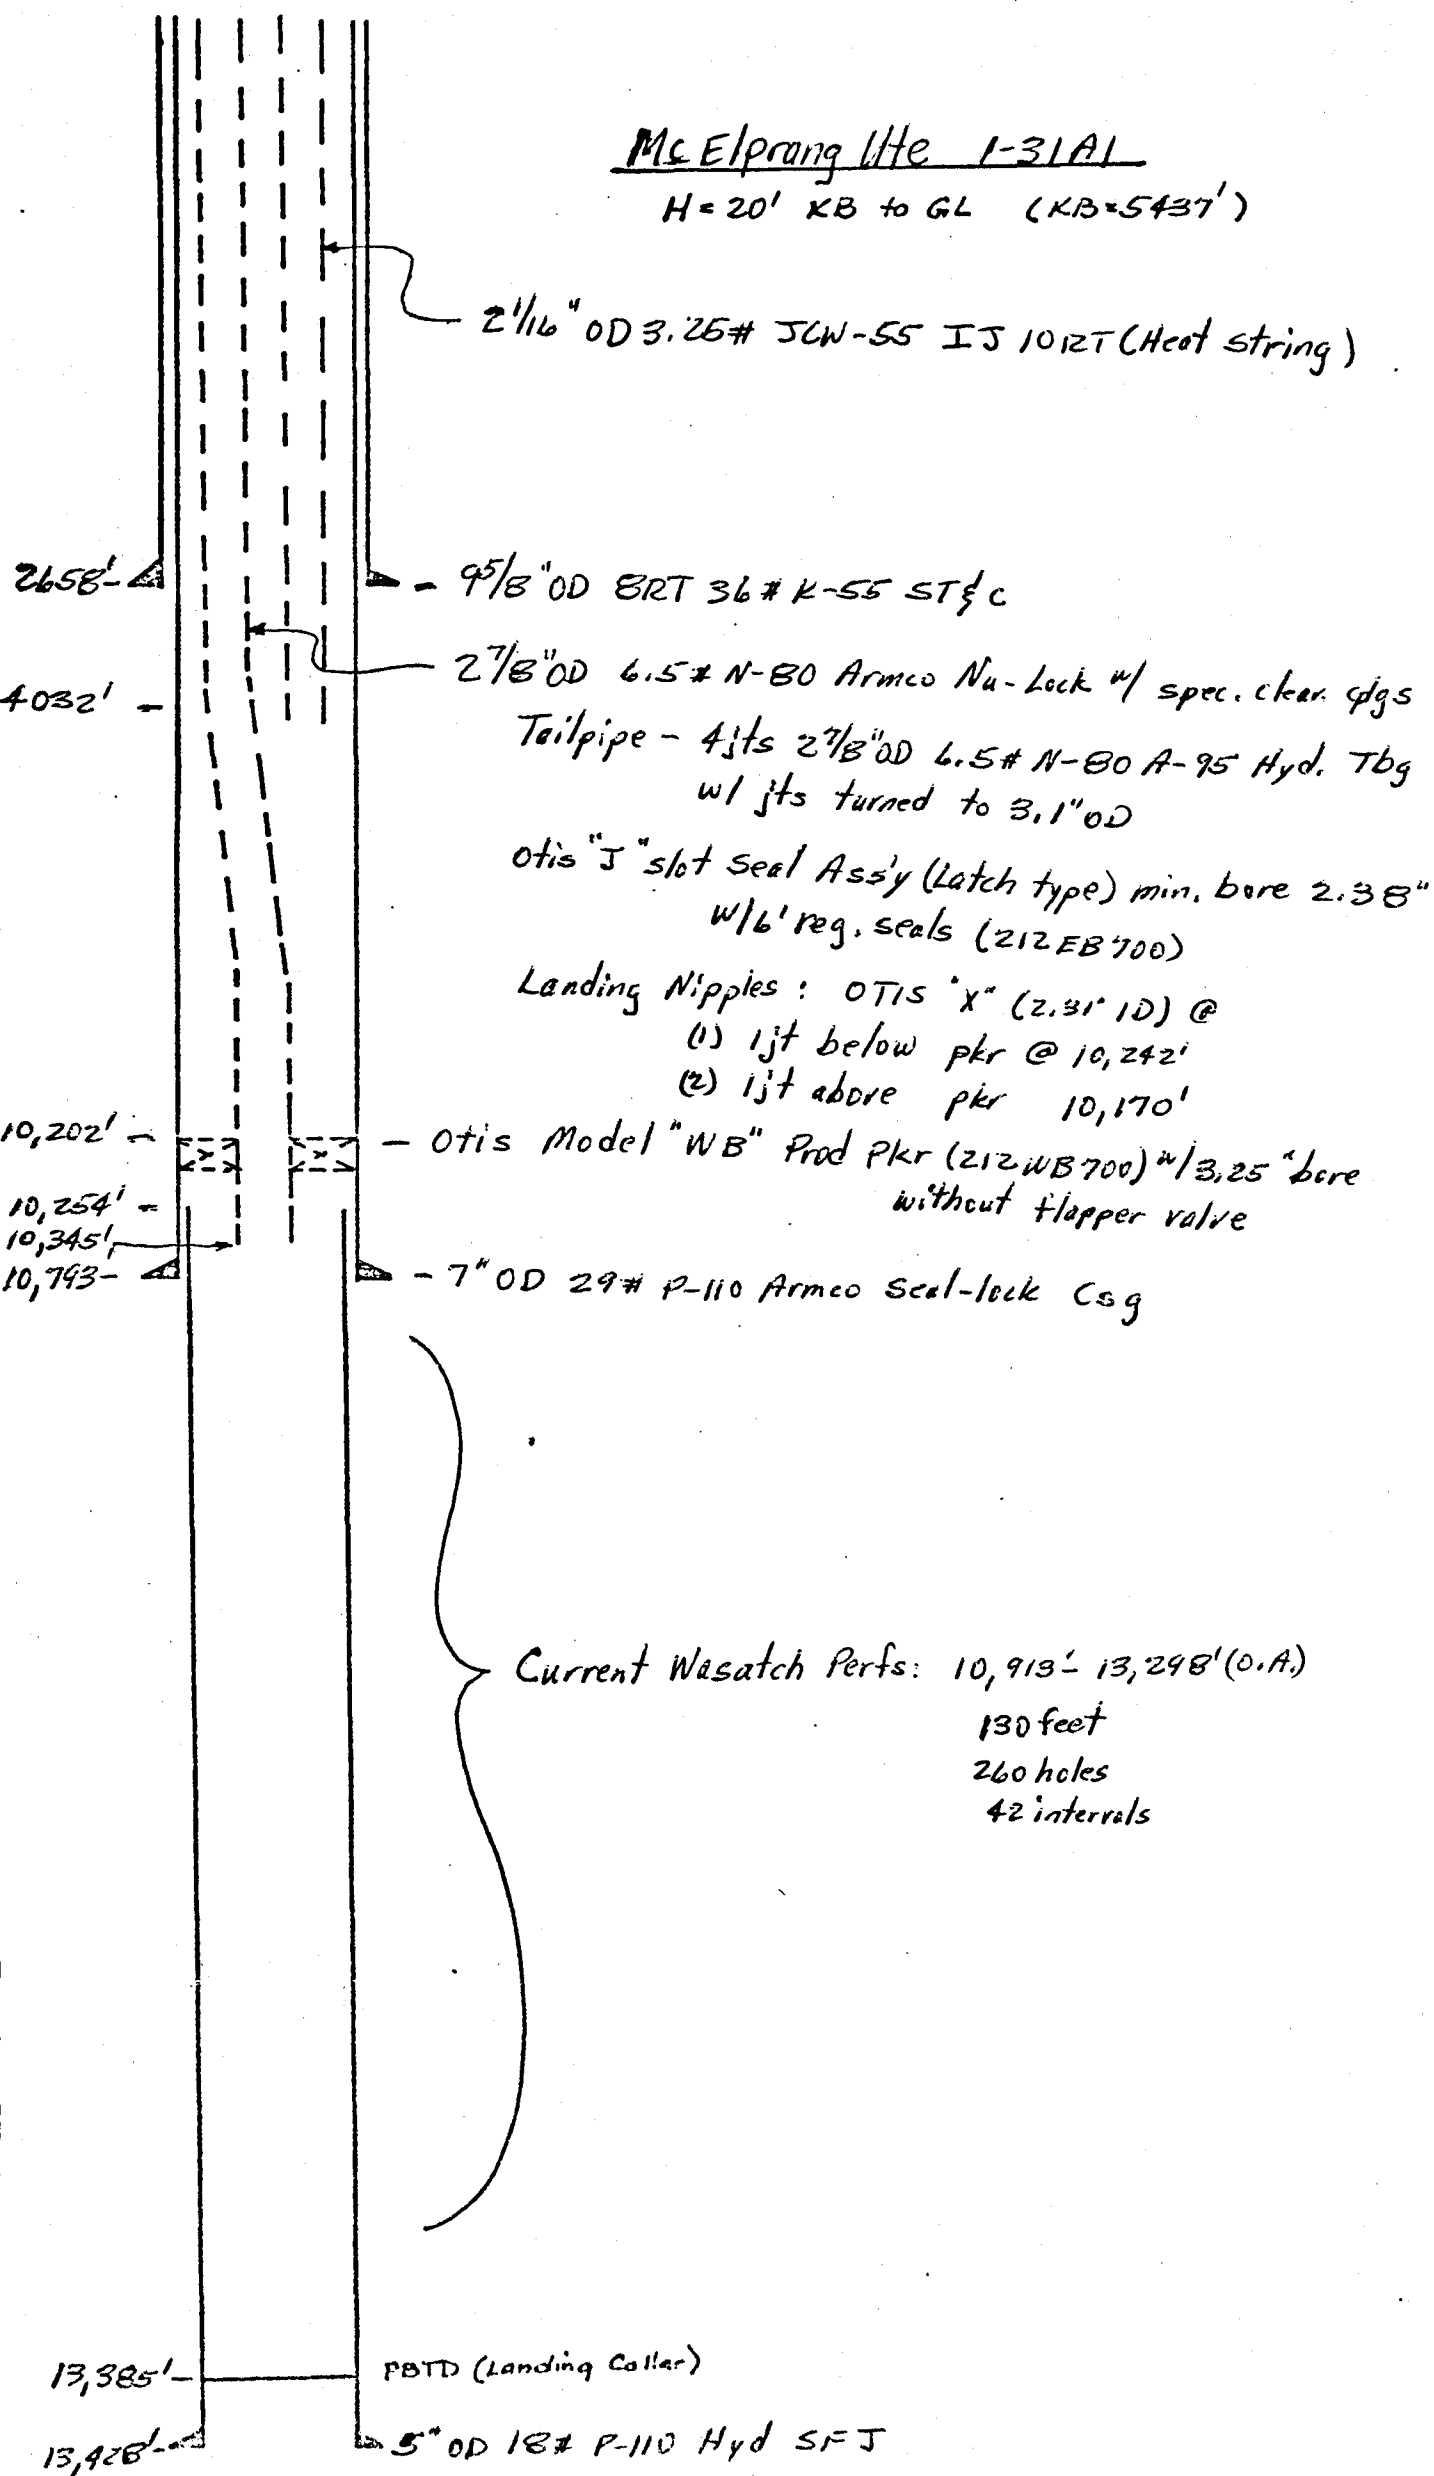 McElprang Ute 1-31A1
H = 20' KB to GL (KB=5437')
2 1/16" OD 3.25# JCW-55 IJ 10RT (Heat string)
2658' - 9 5/8" OD 8RT 36# K-55 ST&C
2 7/8" OD 6.5# N-80 Armco Nu-Lock w/ spec. clear. cplgs
4032' -
Tailpipe - 4jts 2 7/8" OD 6.5# N-80 A-95 Hyd. Tbg
w/ jts turned to 3.1" OD
Otis "J" slot Seal Ass'y (Latch type) min. bore 2.38"
w/6' reg. seals (212EB700)
Landing Nipples: OTIS "X" (2.31" ID) @
(1) 1jt below pkr @ 10,242'
(2) 1jt above pkr 10,170'
10,202' - - Otis Model "WB" Prod Pkr (212WB700) w/3.25" bore
without flapper valve
10,254' -
10,345'
10,793 - - 7" OD 29# P-110 Armco Seal-lock Csg
Current Wasatch Perfs: 10,913'- 13,298' (O.A.)
130 feet
260 holes
42 intervals
13,385' - PBTD (Landing Collar)
13,428' - 5" OD 18# P-110 Hyd SFJ